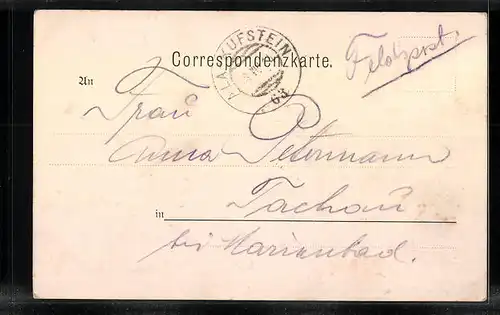 Correspondenzkarte.
Feldpost.
ALA-KUFSTEIN
63
An
Frau
Anna Petermann
in
Tachau
bei Marienbad.